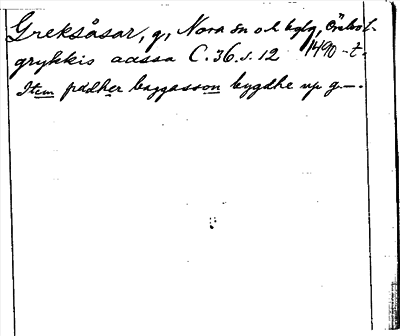 Greksåsar, g, Nora sn och bglg, Örebro l.
grykkis aassa C. 36. s. 12 1490-t.
Item pädher baggasson bygdhe up g—.